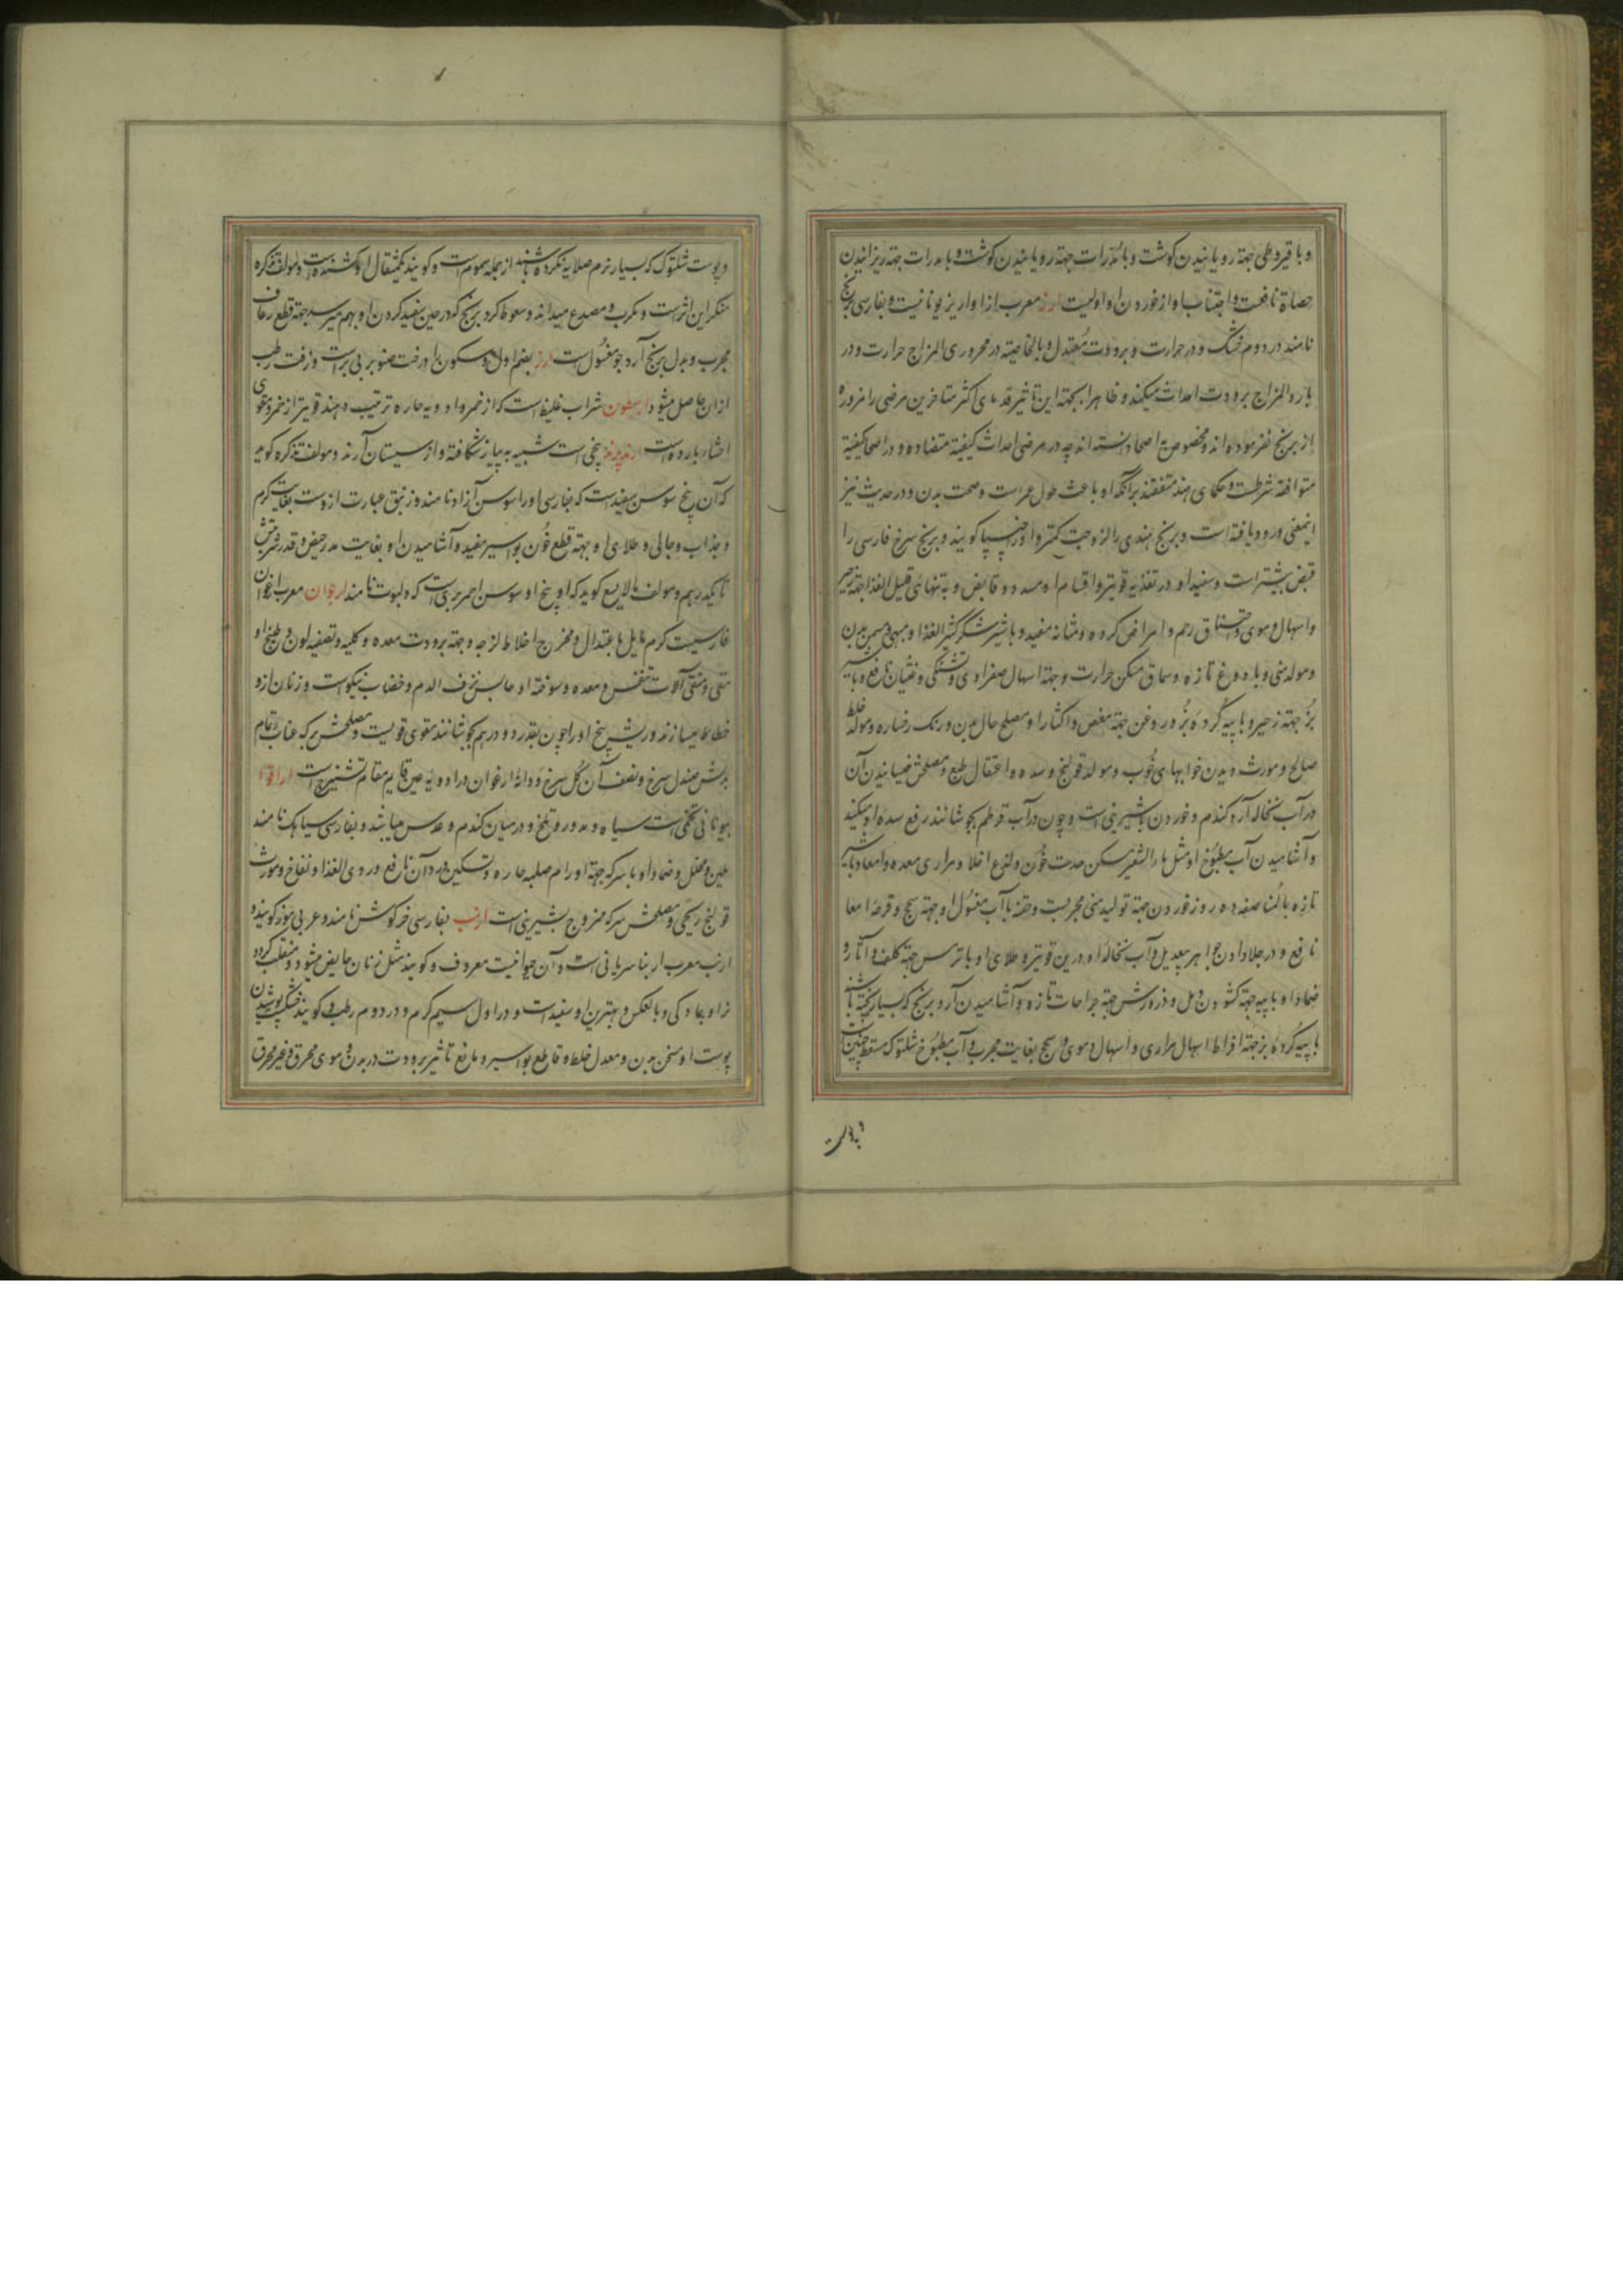 و با قیروطی جهة رویانیدن گوشت و با مدرات جهة رویانیدن گوشت و با مدرات جهة ریزانیدن
حصاة نافعست و اجتناب او از خوردن او اولیست ارز معرب از اواریز یونانیست و بفارسی برنج
نامند در دوم خشک و در حرارت و برودت معتدل و بالخاصیة در محروری المزاج حرارت و در
بارد المزاج برودت احداث میکند و ظاهرا بجهة این تاثیر قدمای اکثر متاخرین مرضی را مزوره
از برنج نفرموده اند و مخصوص اصحا دانسته اند چه در مرضی احداث کیفیة متضاده و در اصحا کیفیة
متوافقه شرطست و حکمای هند متفقند بر آنکه او باعث طول عمرست و صحت بدن و در حدیث نیز
اینمعنی ورود یافته است و برنج هندی را لزوجت کمتر و او را چنپا گویند و برنج سرخ فارسی را
قبض بیشتر است و سفید او در تغذیه قویتر و اقسام او مسدد و قابض و به تنهائی قلیل الغذا جهة زحیر
و اسهال دموی و اختناق رحم و امراض گرده و مثانه مفید و با شیر و شکر کثیر الغذا و مبهی و مسمن بدن
و مولد منی و با دوغ تازه و سماق مسکن حرارت و جهة اسهال صفراوی و تشنگی و غثیان نافع و با شیر
بز جهة زحیر و با پیه گرده بز و روغن جهة مغص و اکثار او مصلح حال بدن و رنک رخساره و مولد خلط
صالح و مورث دیدن خوابهای خوب و مولد قولنج و سده و اعتقال طبع و مصلحش خیسانیدن آن
در آب نخاله آرد گندم و خوردن با شیرینی است و چون در آب قرطم بجوشانند رفع سده او میکند
و آشامیدن آب مطبوخ او مثل ماء الشعیر مسکن حدت خون و لذع اخلاط مراری معده و امعا و با شیر
تازه بالمناصفه ده روز خوردن جهة تولید منی مجربست و حقنه با آب مغسول او جهة سحج و قرحه امعا
نافع و در جلا دادن جواهر بیعدیل و آب نخاله او درین قویتر و طلای او با ترمس جهة کلف و آثار و
ضماد او با پیه جهة گشودن دمل و ذرورش جهة جراحات تازه و آشامیدن آرد برنج که بسیار پخته باشند
با پیه گرده بز جهة افراط اسهال مراری و اسهال دموی و سحج بغایت مجرب و آب مطبوخ شلتوک مسقط جنین است
و پوست شلتوک که بسیار نرم صلایه نکرده باشند از جمله سموم است و گویند یکمثقال او کشنده است و مولف تذکره
منکر این اثر است و مکرب و مصدع میداند و سعوط گرد برنج که در حین سفید کردن او بهم میرسد جهة قطع رعاف
مجرب و بدل برنج آرد جو مغسول است ارز بضم اول و سکون را درخت صنوبر بی برست و زفت رطب
از آن حاصل میشود شراب غلیظ است که از خمر و ادویه حاره ترتیب دهند قویتر از خمر و دعوی
احشاء بارده است ارندبرند بیخی است شبیه به پیاز شکافته و از سیستان آرند و مولف تذکره گوید
که آن بیخ سوسن سفیدست که بفارسی او را سوسن آزاد نامند و زنبق عبارت ازوست بغایت گرم
و جذاب و جالی و طلای او جهة قطع خون بواسیر مفید و آشامیدن او بغایت مدر حیض و قدر شربتش
تا یکدرهم و مولف مالایسع گوید که او بیخ او سوسن احمر بری است که دلبوث نامند ارجوان معرب ارغوان
فارسیست گرم مایل باعتدال و مخرج اخلاط لزجه و جهة برودت معده و کلیه و تصفیه لون و طبیخ او
مقی و منقی آلات تنفس و معده و سوخته او حابس نزف الدم و خضاب نیکوست و زنان ازو
خطاط میسازند و ریشه بیخ او را چون بقدر دو درهم بجوشانند مقوی قویست و مصلحش برکه عناب تمام
بدلش صندل سرخ و نصف آن گل سرخ و دانه ارغوان در ادویه عین قایم مقام تشنیزج است اراقوا
بیونانی تخمی است سیاه و مدور و تلخ و در میان گندم و عدس میباشد و بفارسی سیاهک نامند
ملین و محلل و ضماد او با سرکه جهة اورام صلبه حاره و تسکین درد آن نافع و ردی الغذا و نفاخ و مورث
قولنج ریحی و مصلحش سرکه ممزوج بشیرینی است ارنب بفارسی خرگوش نامند و عربی خزز گویند و
ارنب معرب اربنا سریانی است و آن حیوانیست معروف و گویند مثل زنان حایض میشود و منقلب گردد
نر او بمادگی و بالعکس و بهترین او سفیدست و در اول سیم گرم و در دوم رطب و گویند خشک پوشیدن
پوست او مسخن بدن و معدل خلط و قاطع بواسیر و مانع تاثیر برودت در بدن و موی محرق و غیر محرق